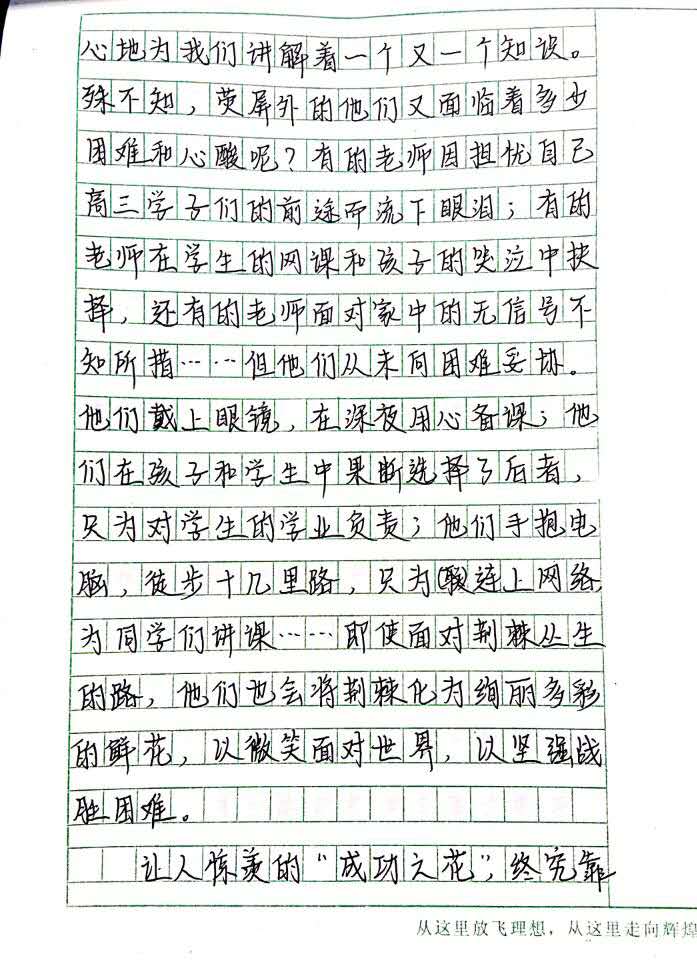 心地为我们讲解着一个又一个知识。
殊不知，荧屏外的他们又面临着多少
困难和心酸呢？有的老师因担忧自己
高三学子们的前途而流下眼泪；有的
老师在学生的网课和孩子的哭泣中抉
择，还有的老师面对家中的无信号不
知所措……但他们从未向困难妥协。
他们戴上眼镜，在深夜用心备课；他
们在孩子和学生中果断选择了后者，
只为对学生的学业负责；他们手抱电
脑，徒步十几里路，只为连上网络，
为同学们讲课……即使面对荆棘丛生
的路，他们也会将荆棘化为绚丽多彩
的鲜花，以微笑面对世界，以坚强战
胜困难。
让人惊羡的“成功之花”，终究靠
从这里放飞理想，从这里走向辉煌